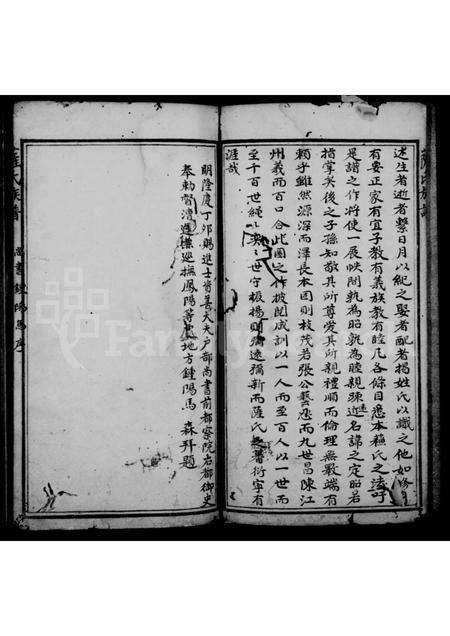 述生者逝者繫日月以紀之娶者配者揭姓氏以識之他如修身
有要正家有宜子教有義族教有睦凡各條目悉本蘇氏之法吁
是譜之作將使一展帙間孰為昭孰為穆孰親孰疎近名諱之定昭若
指掌矣後之子孫知敬其所尊党其所親禮順而倫理無斁端有
賴乎雖然源深而澤長本固則枝茂若張公藝忍而九世昌陳江
州義而百口合此圖之作披閱成訓以一人而至百人以一世而
至千百世繩繩世守振揚則病遠彌新而薩氏之蕃衍寧有
涯哉
明隆慶丁卯賜進士資善大夫戶部尚書前都察院右都御史
奉勅督漕運撫巡撫鳳陽等處地方鍾陽馬森拜題
薩氏族譜
尚書鍾陽馬序
FamilySearch